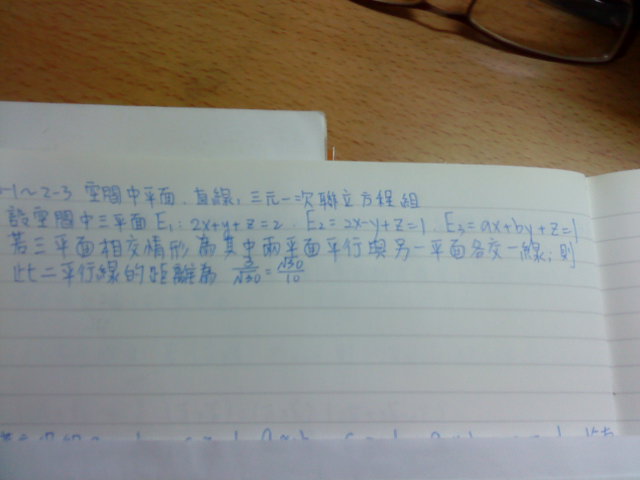 -1～2-3 空間中平面、直線，三元一次聯立方程組
設空間中三平面 E₁: 2x+y+z=2、E₂=2x-y+z=1、E₃=ax+by+z=1
若三平面相交情形為其中兩平面平行與另一平面各交一線，則
此二平行線的距離為 3/√30 = √30/10